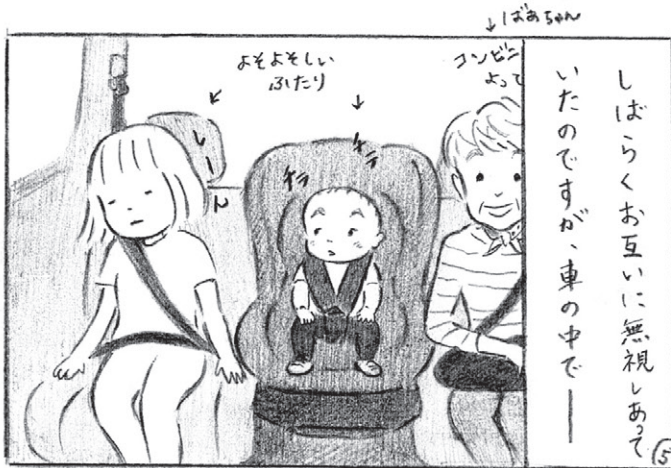 しばらくお互いに無視しあって
いたのですが、車の中で――
↓ばあちゃん
コンビニ
よって
よそよそしい
ふたり
チラ
チラ
しーん